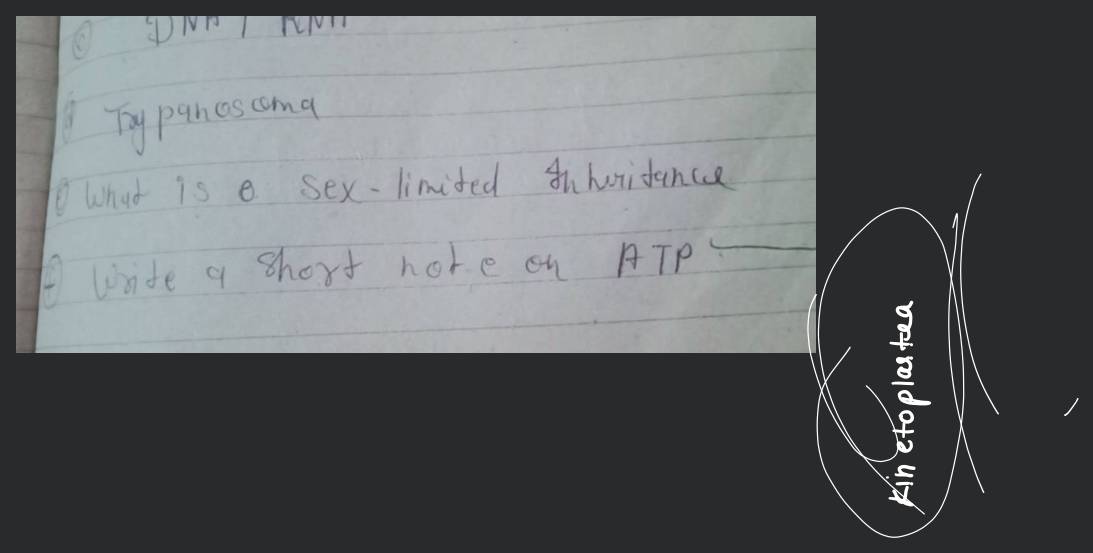 © DNA / RNA
Trypanosoma
What is a sex-limited Inheritance
Write a short note on ATP
Kinetoplastea